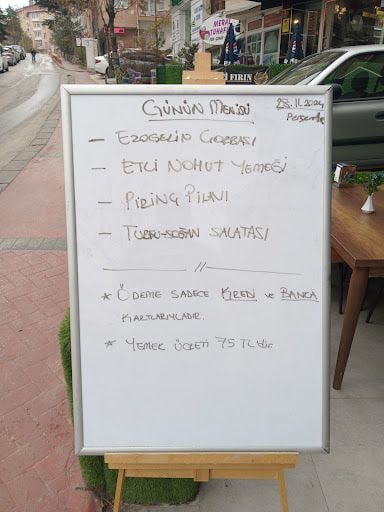 GÜNÜN MENÜSÜ
28.11.2024
Perşembe
- EZOGELİN ÇORBASI
- ETLİ NOHUT YEMEĞİ
- PİRİNÇ PİLAVI
- TURŞU-SOĞAN SALATASI
//
* ÖDEME SADECE KREDİ ve BANKA
KARTLARIYLADIR.
* YEMEK ÜCRETİ 75 TL'dir.
MERAL
FIRIN